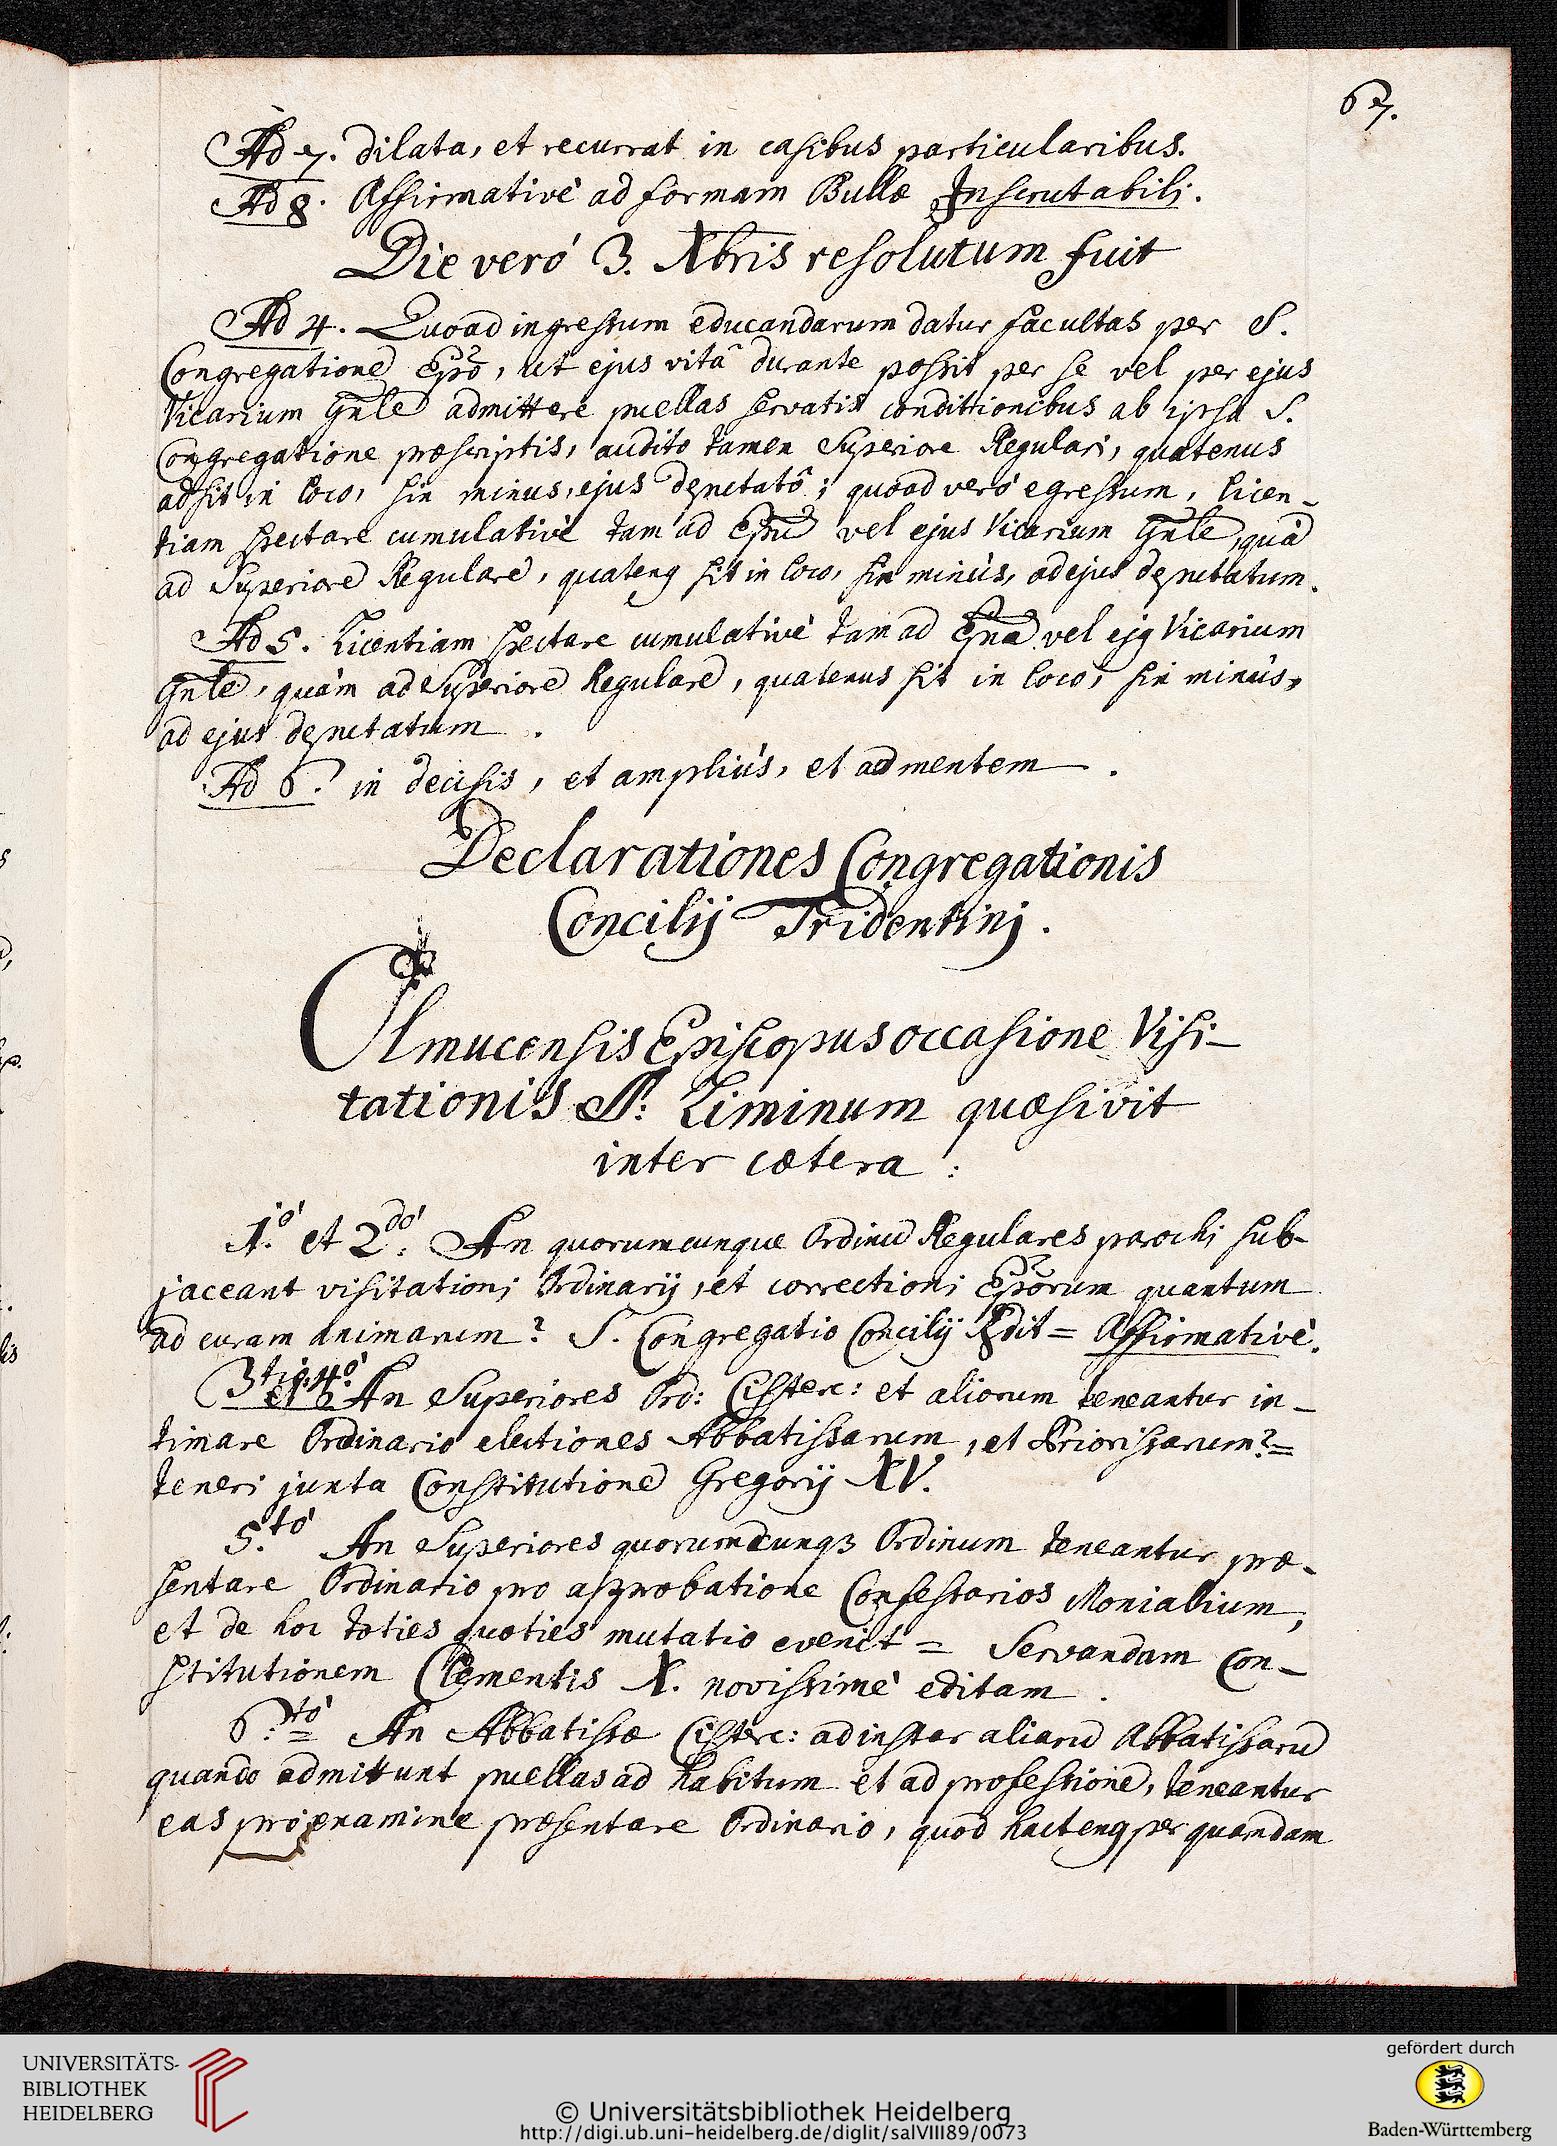 67.
Ad 7. dilata, et recurrat in casibus particularibus.
Ad 8. Affirmativè ad formam Bullæ Inscrutabili.
Die verò 3. Xbris resolutum fuit
Ad 4. Quoad ingressum educandarum datur facultas per S.
Congregatione Epo, ut ejus vitâ durante possit per se vel per ejus
Vicarium Gnle admittere puellas servatis condittionibus ab ipsa S.
Congregatione præscriptis, audito tamen Superiore Regulari, quatenus
adsit in loco, sin minus, ejus deputatô; quoad verò egressum, licen-
tiam spectare cumulativè tam ad Epu vel ejus Vicarium Gnle, quà
ad Superiore Regulare, quateng sit in loco, sin minùs, ad ejus deputatum.
Ad 5. Licentiam spectare cumulativè tam ad vel ejg Vicarium
Gnle, quàm ad Superiore Regulare, quatenus sit in loco, sin minùs,
ad ejus deputatum.
Ad 6. in decisis, et ampliùs, et ad mentem.
Declarationes Congregationis
Concilij Tridentinj.
Olmucensis Episcopus occasione Visi-
tationis S: Liminum quæsivit
inter cætera:
1.ò et 2.dò: An quorumcunque Ordinu Regulares parochi sub-
jaceant visitationj Ordinarij, et correctionj Eporum quantum
ad curam animarum? S. Congregatio Concilij Rdit = Affirmativè.
3tiò et 4tò. An Superiores Ord: Cisterc: et aliorum teneantur in-
timare Ordinario electiones Abbatissarum, et Priorissarum?=
teneri juxta Constitutione Gregorij XV.
5.tò An Superiores quorumcunq3 Ordinum teneantur præ-
sentare Ordinario pro approbatione Confessarios Monialium,
et de hoc toties quoties mutatio evenit = Servandam Con-
stitutionem Clementis X. novissimè editam.
6.tò = An Abbatissæ Cisterc: ad instar aliaru Abbatissaru
quando admittunt puellas ad habitum et ad professione, teneantur
eas pro examine præsentare Ordinario, quod hacteng per quamdam
UNIVERSITÄTS-
BIBLIOTHEK
HEIDELBERG
© Universitätsbibliothek Heidelberg
http://digi.ub.uni-heidelberg.de/diglit/salVIII89/0073
gefördert durch
Baden-Württemberg